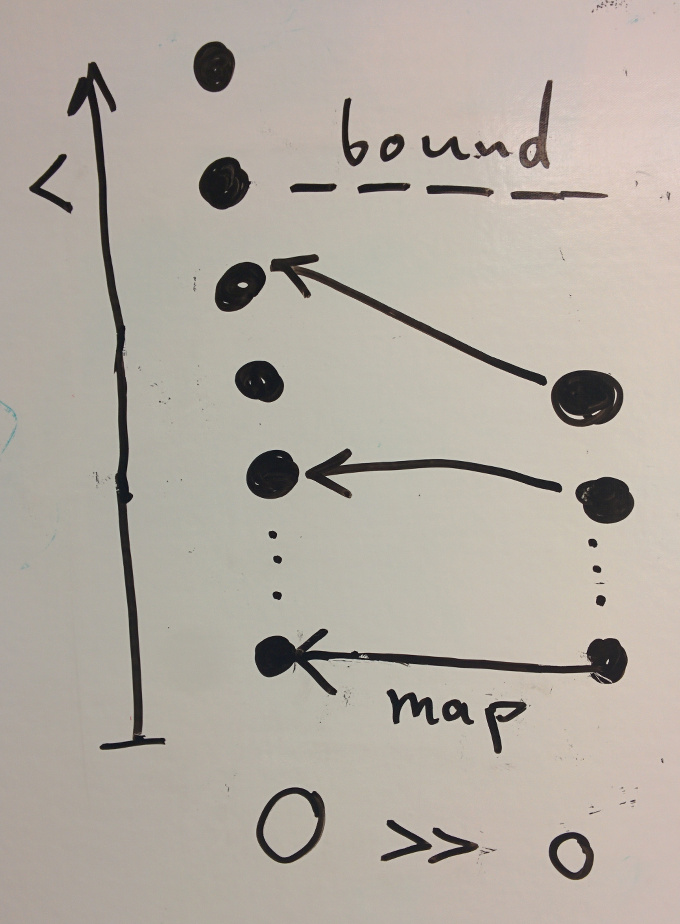 bound
<
map
O >> o